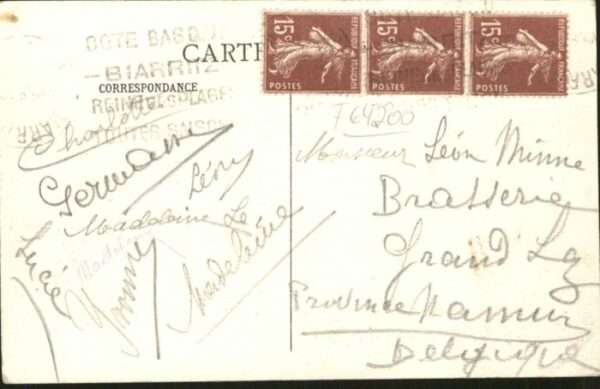 COTE BASQUE
-BIARRITZ
REINE DES PLAGES
TOUTES SAISONS
CARTE
CORRESPONDANCE
15c REPUBLIQUE FRANÇAISE POSTES
15c REPUBLIQUE FRANÇAISE POSTES
15c REPUBLIQUE FRANÇAISE POSTES
F 64200
Charlotte
Germaine
Léon
Madeleine
Lucie
Yvonne
Madeleine
Monsieur Léon Minne
Brasserie
Grand Lez
Province Namur
Belgique